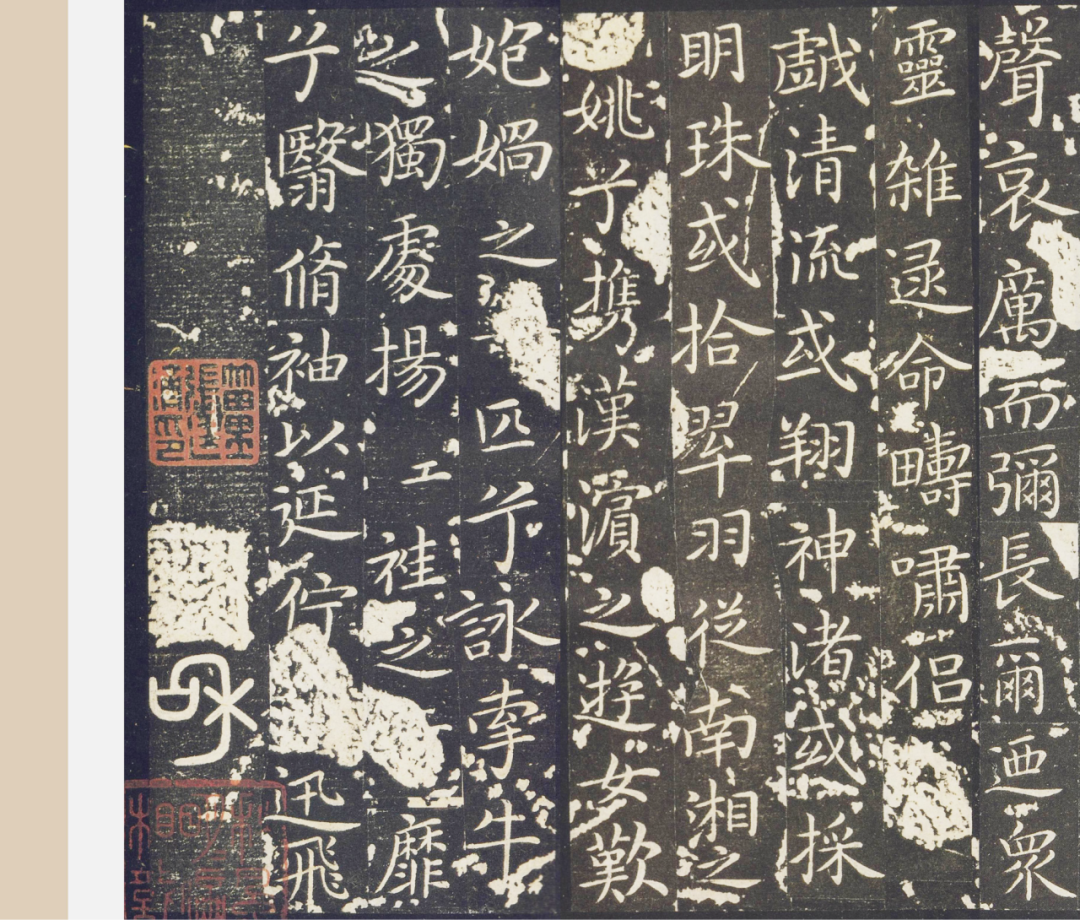 聲哀厲而彌長爾迺衆
靈雜遝命疇嘯侶
戲清流或翔神渚或採
明珠或拾翠羽從南湘之
姚兮携漢濵之遊女歎
㚿媧之匹兮詠牽牛
之獨處揚袿之靡
兮翳脩袖以延佇迅飛